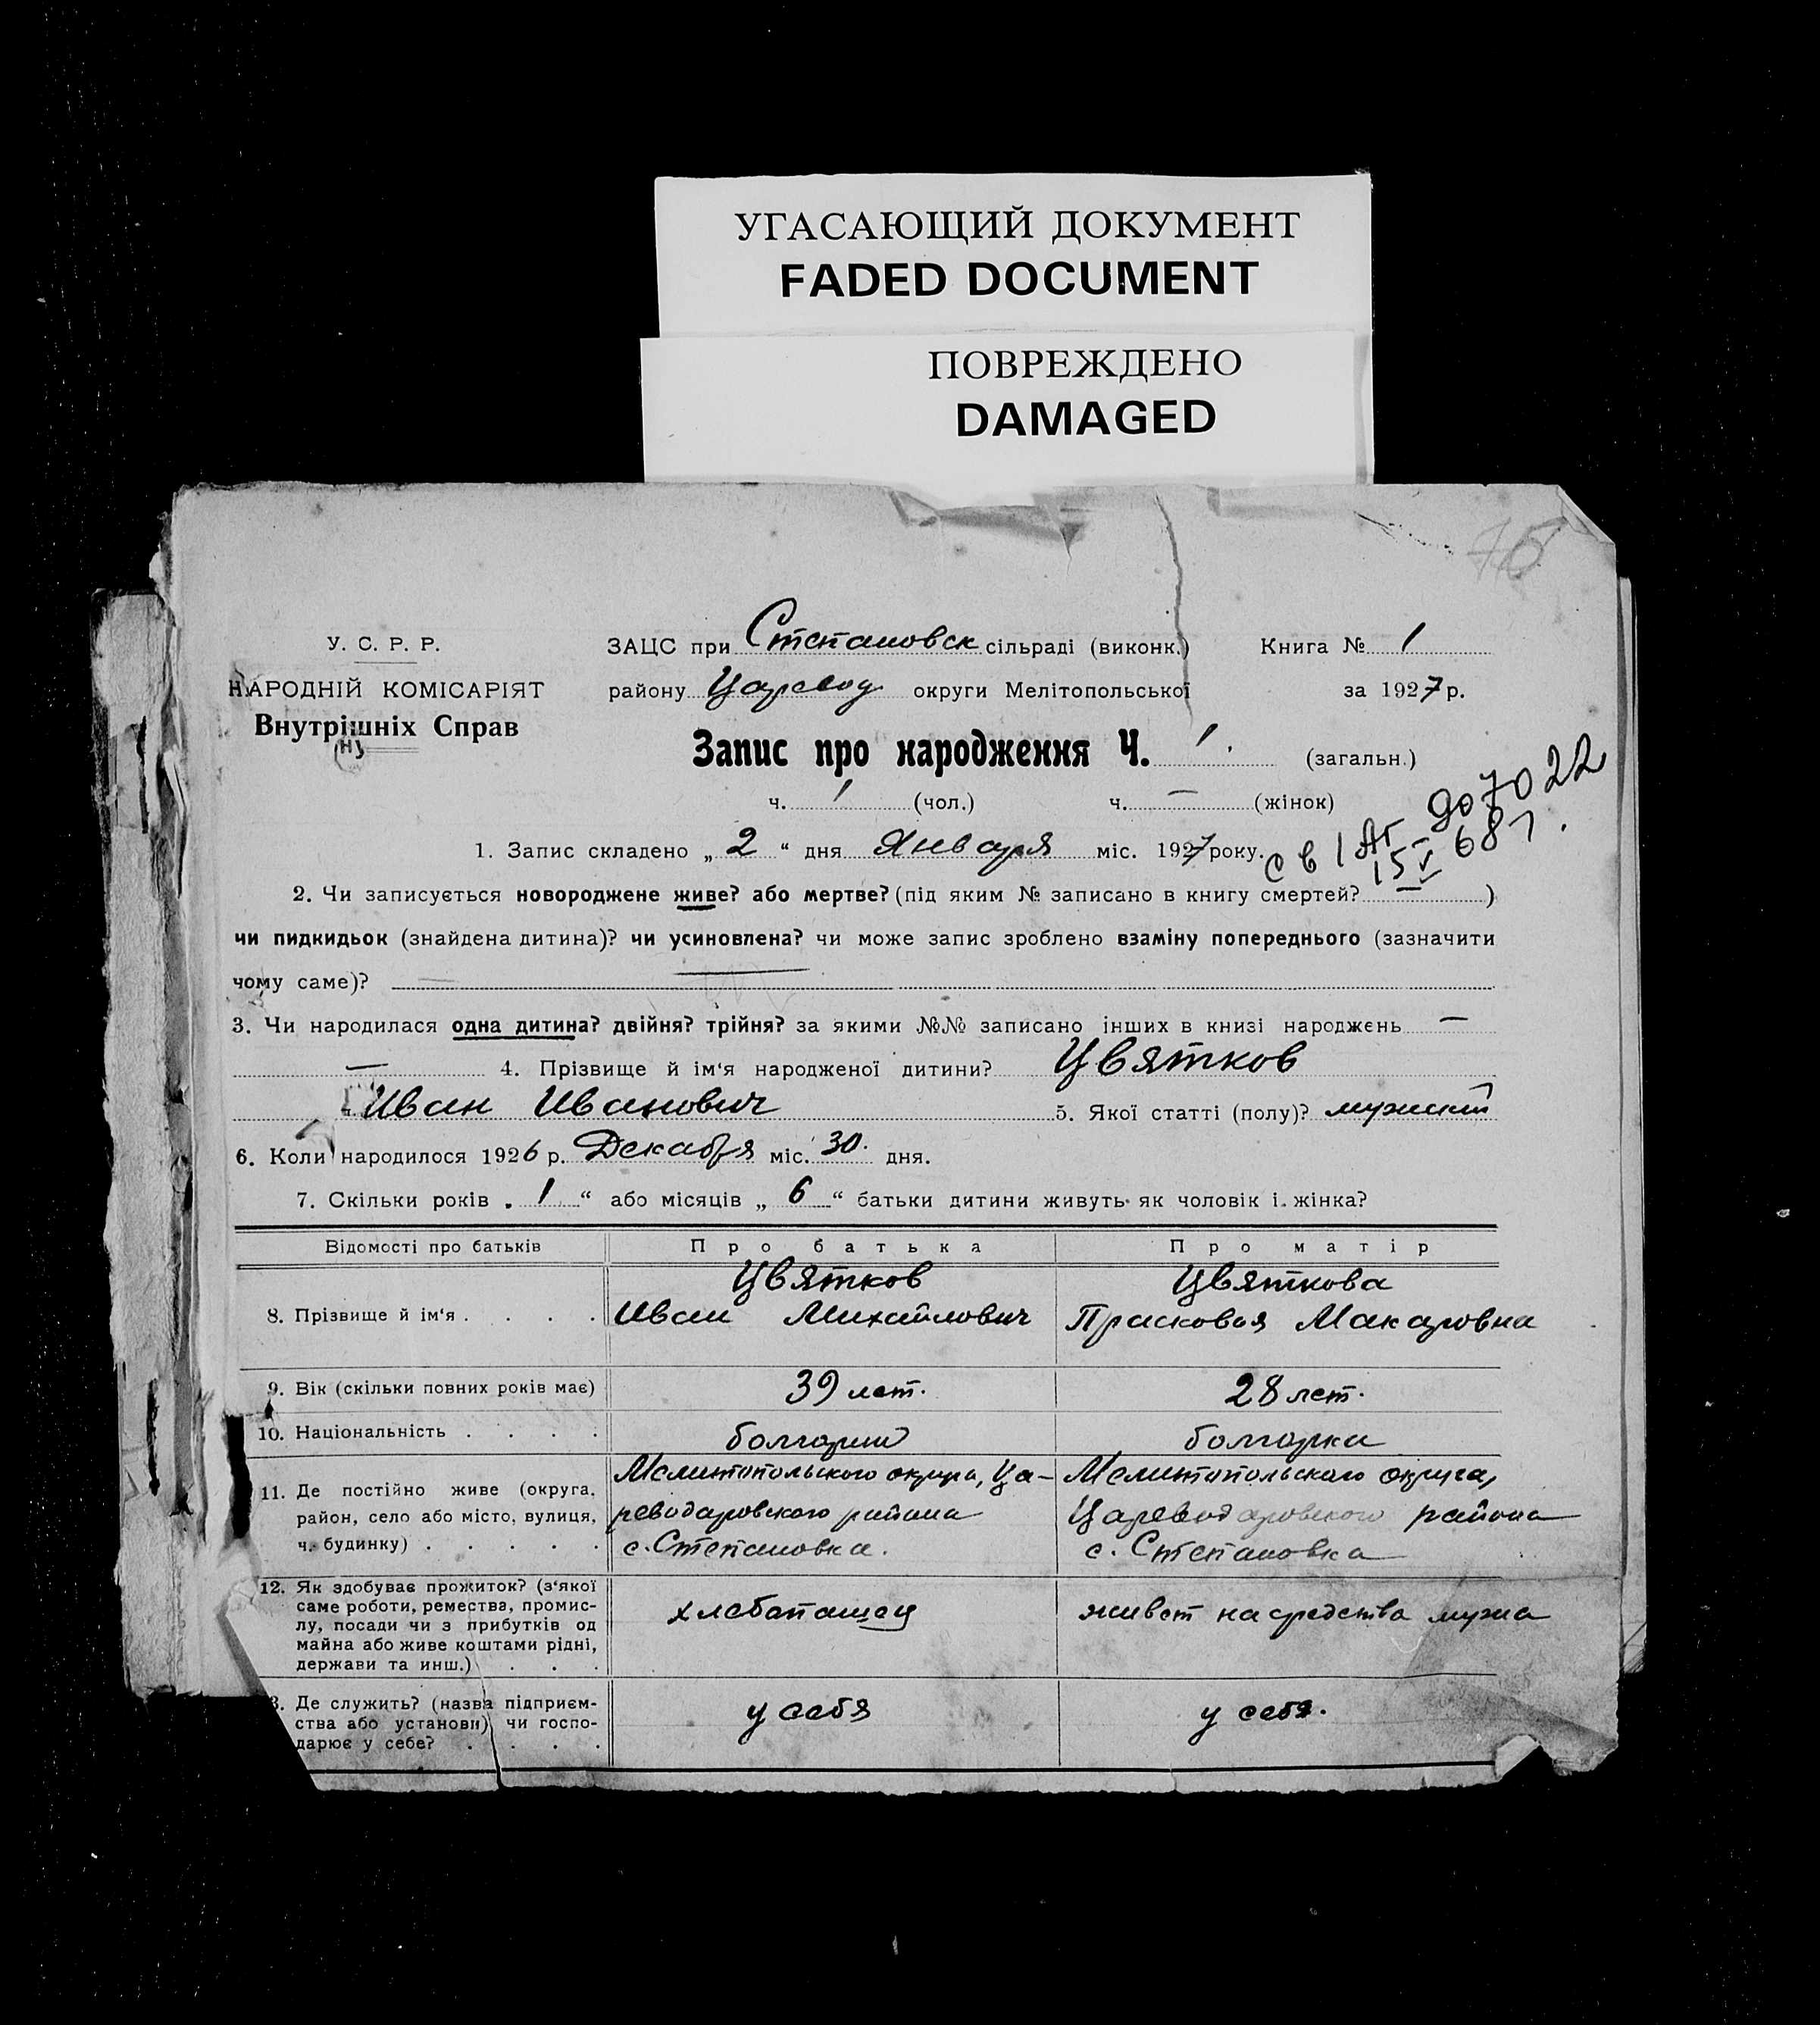 УГАСАЮЩИЙ ДОКУМЕНТ
FADED DOCUMENT
ПОВРЕЖДЕНО
DAMAGED
75
У. С. Р. Р.
НАРОДНІЙ КОМІСАРІЯТ
Внутрішніх Справ
ЗАЦС при Степановск сільраді (виконк.) Книга № 1
району Царевод округи Мелітопольської за 1927 р.
Запис про народження Ч. 1. (загальн.)
ч. 1 (чол.) ч. — (жінок)
до 7022
1. Запис складено „ 2 “ дня Января міс. 1927 року. с в 1 АГ 15 V 681.
2. Чи записується новороджене живе? або мертве? (під яким № записано в книгу смертей? — )
чи пидкидьок (знайдена дитина)? чи усиновлена? чи може запис зроблено взаміну попереднього (зазначити
чому саме)? —
3. Чи народилася одна дитина? двійня? трійня? за якими №№ записано інших в книзі народжень —
— 4. Прізвище й ім‘я народженої дитини? Цвятков
Иван Иванович 5. Якої статті (полу)? мужской
6. Коли народилося 1926 р. Декабря міс. 30. дня.
7. Скільки років „ 1 “ або місяців „ 6 “ батьки дитини живуть як чоловік і жінка?
Відомості про батьків Про батька Про матір
8. Прізвище й ім‘я . . . . Цвятков Иван Михайлович Цвяткова Прасковья Макаровна
9. Вік (скільки повних років має) 39 лет. 28 лет.
10. Національність . . . . болгарин болгарка
11. Де постійно живе (округа, район, село або місто, вулиця, ч. будинку) . . . . . Мелитопольского округа, Ца-
реводаровского района
с. Степановка. Мелитопольского округа,
Цареводаровского района
с. Степановка
12. Як здобуває прожиток? (з‘якої
саме роботи, ремества, промис-
лу, посади чи з прибутків од
майна або живе коштами рідні,
держави та инш.) . . . хлебопашец живет на средства мужа
3. Де служить? (назва підприєм-
ства або установи) чи госпо-
дарює у себе? . . . . у себя у себя.